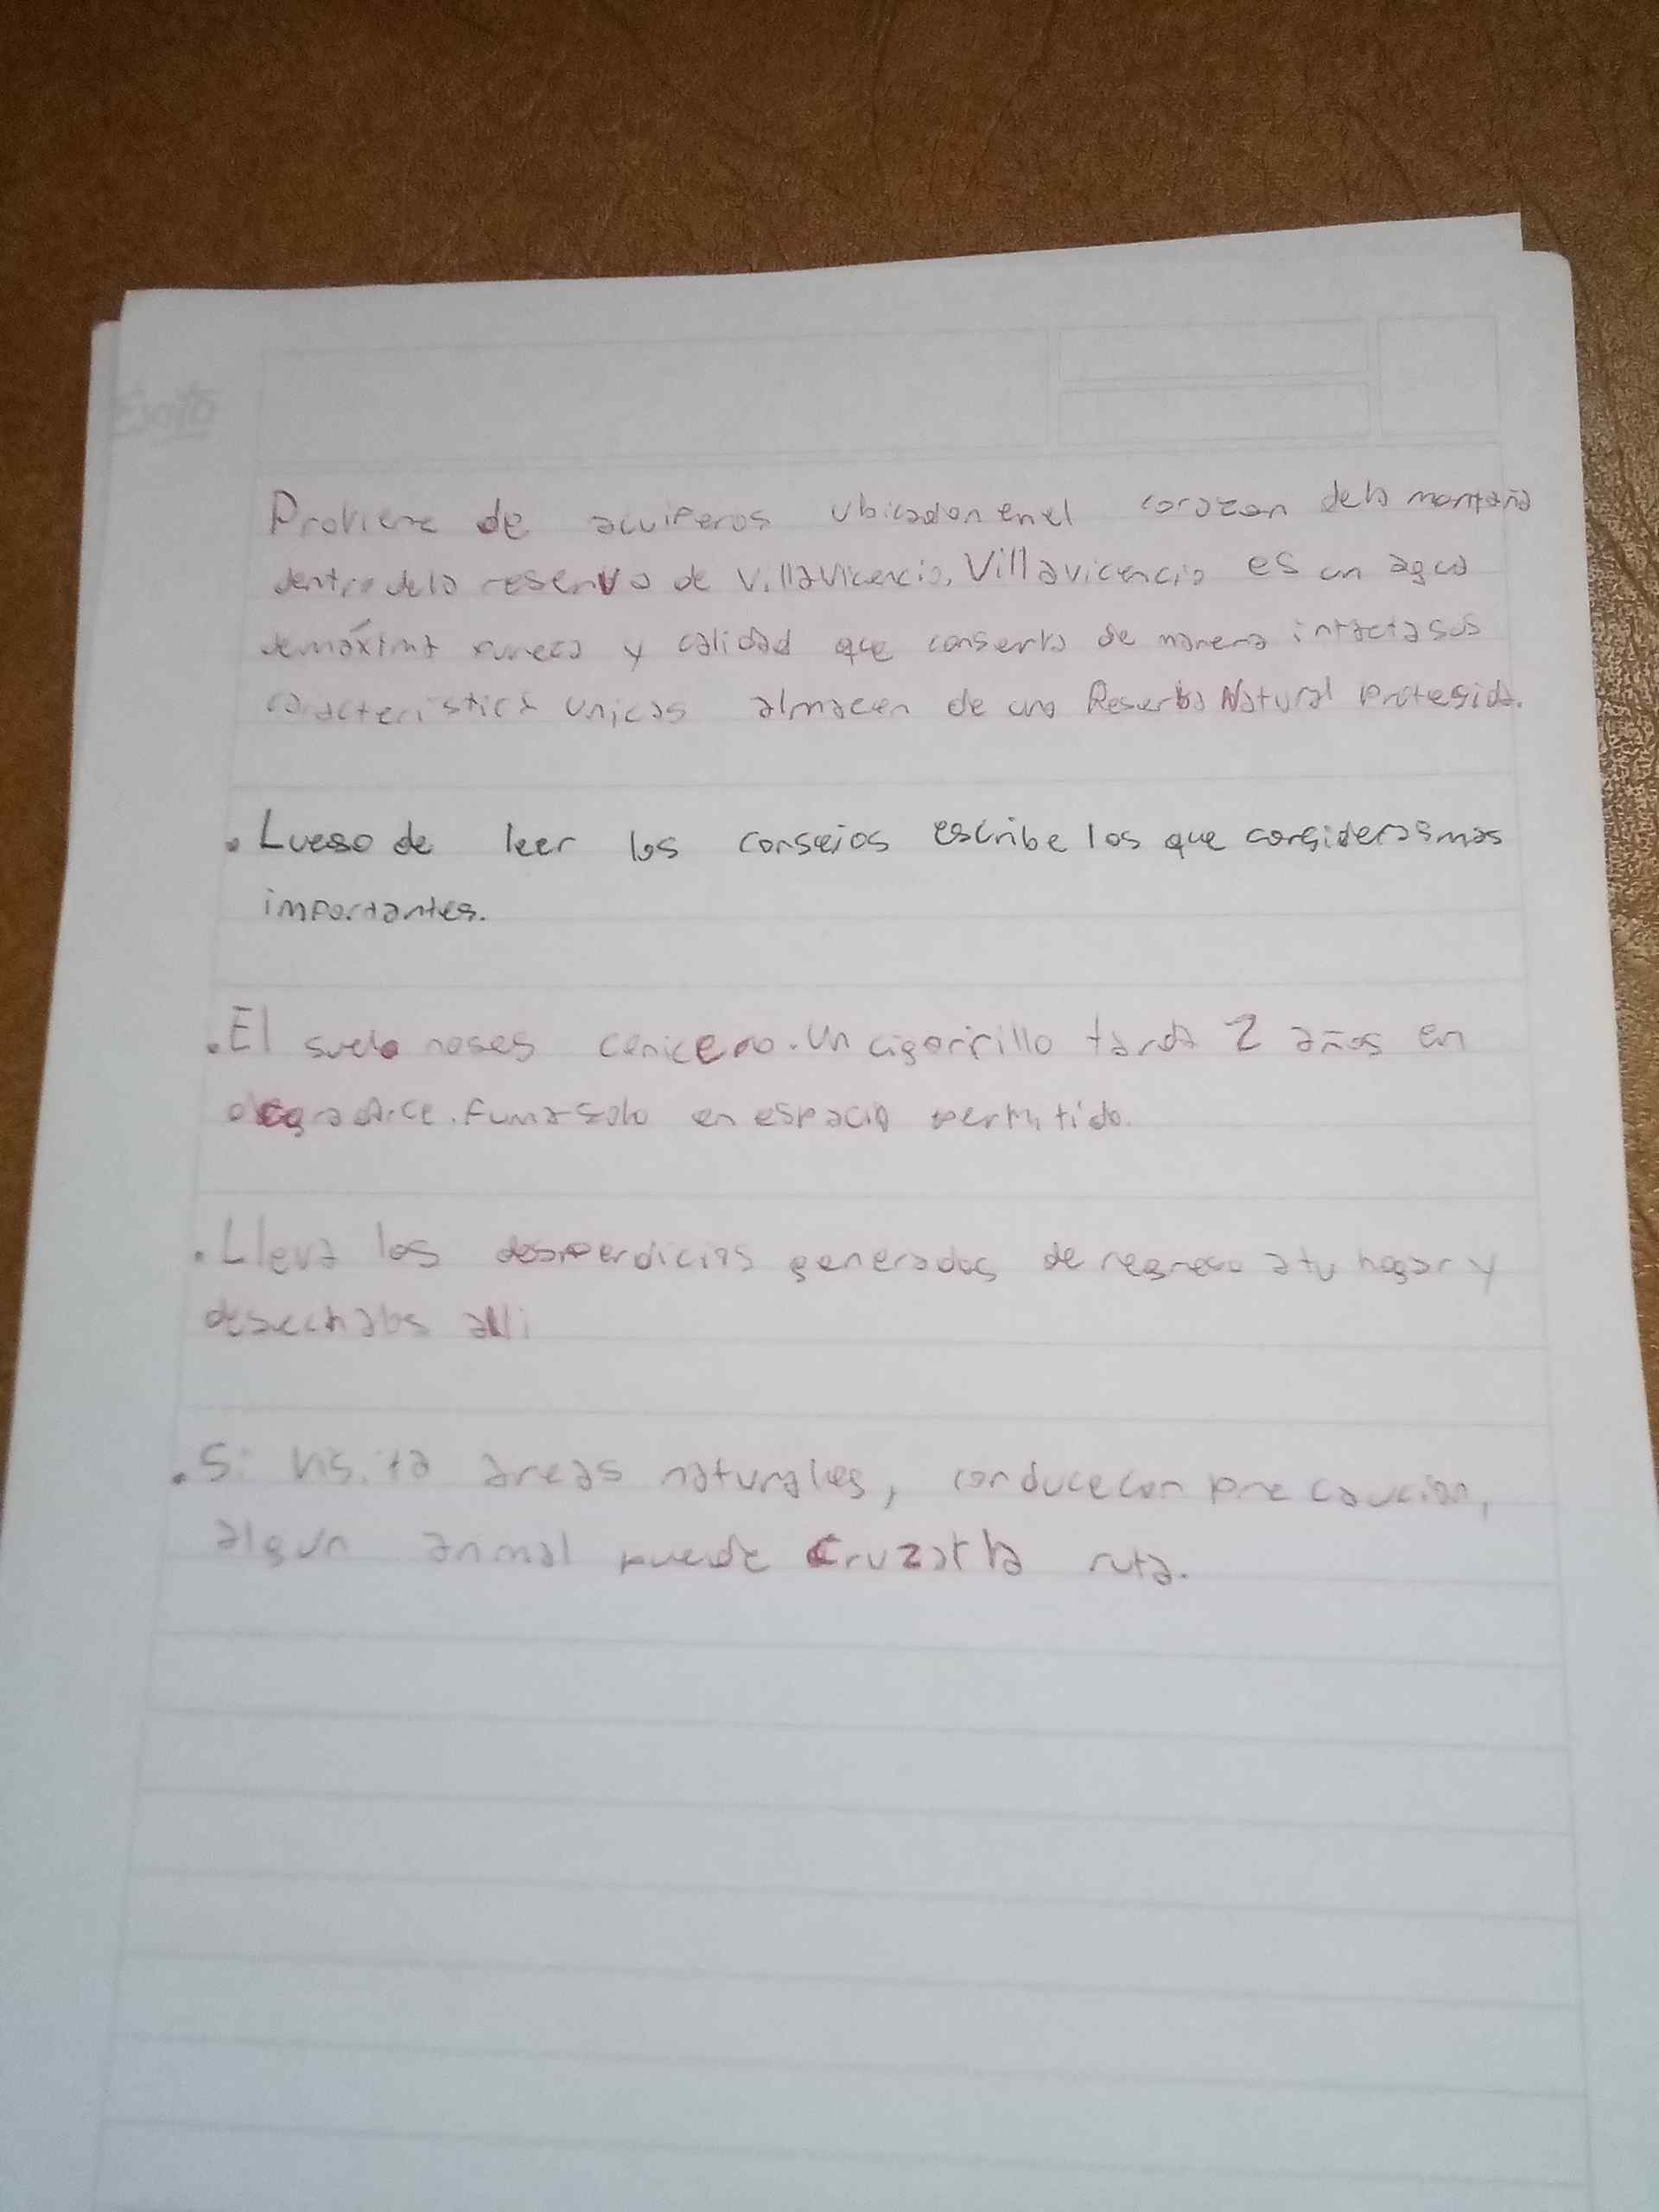 Proviene de acuiferos ubicadon en el corazon dela montaña
dentro dela reserva de Villavicencio, Villavicencio es un agua
de máxima pureza y calidad que conserba de manera intacta sus
caracteristica unicas almacen de una Reserba Natural Protegida.
. Luego de leer los consejos escribe los que consideras mas
importantes.
. El suelo no ses cenicero. Un cigarrillo tarda 2 años en
degradarce. Fuma solo en espacio permitido.
. Lleva los desperdicios generados de regreso a tu hogar y
desechalos alli
. Si visita areas naturales, conduce con precaucion,
algun animal puede cruzar la ruta.